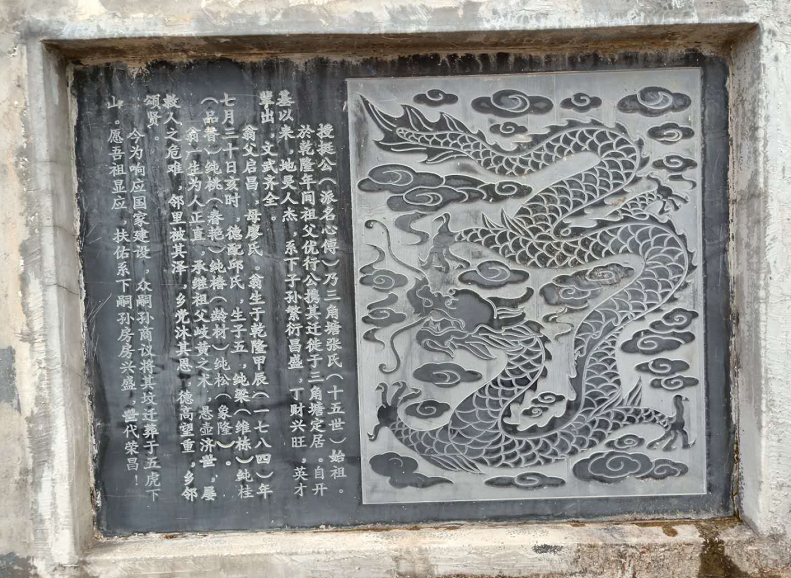 授挺公（派名心傳）乃三角塘张氏（十五世）始祖。
於乾隆年间祖父优行公携其迁徙于三角塘定居。自开
基以来，地灵人杰，系下子孙繁衍昌盛，丁财兴旺，英才
辈出，文武齐全。
翁父启昌，母廖氏。翁生于乾隆甲辰（一七八四）年
七月三十日亥时，德配邱氏，生子五，纯梁（维栋）纯桂
（品馨）纯桃（春艳）纯椿（龄材）纯松（象隆）。
翁一生为人正直，承继祖父岐黄之术，悬壶济世，屡
救人之危难，邻里被其泽，乡党沐其恩，德高望重，乡邻
颂贤。
今为响应国家建设，众嗣孙商议将其坟迁葬于五虎下
山。愿吾祖显应，扶佑系下嗣孙房房兴盛，世代荣昌！